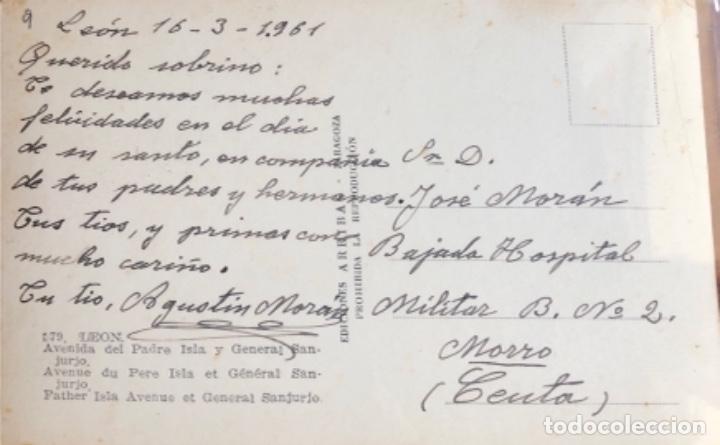 9
León 16-3-1961
Querido sobrino:
Te deseamos muchas
felicidades en el dia
de su santo, en compania
de tus padres y hermanos.
Tus tios, y primas con
mucho cariño.
Tu tio, Agustin Moran
Sr D.
José Morán
Bajada Hospital
Militar B. Nº 2.
Morro
(Ceuta)
EDICIONES ARRIBAS - ZARAGOZA
PROHIBIDA LA REPRODUCCIÓN
179. LEON.
Avenida del Padre Isla y General San-
jurjo.
Avenue du Pere Isla et Général San-
jurjo.
Father Isla Avenue et General Sanjurjo.
todocoleccion